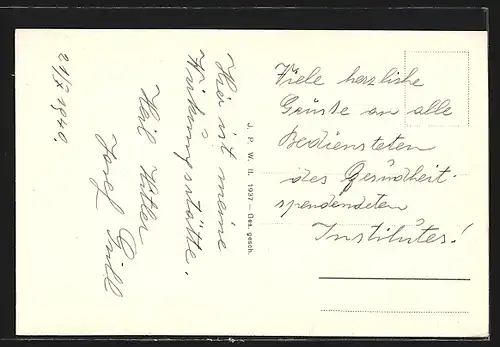 Viele herzliche
Grüße an alle
Bediensteten
des Gesundheit-
spendendeten
Institutes!
J. P. W. II. 1937 — Ges. gesch.
Hier ist meine
Wirkungsstätte.
Heil Hitler
Josef Grill
21/X 1940.